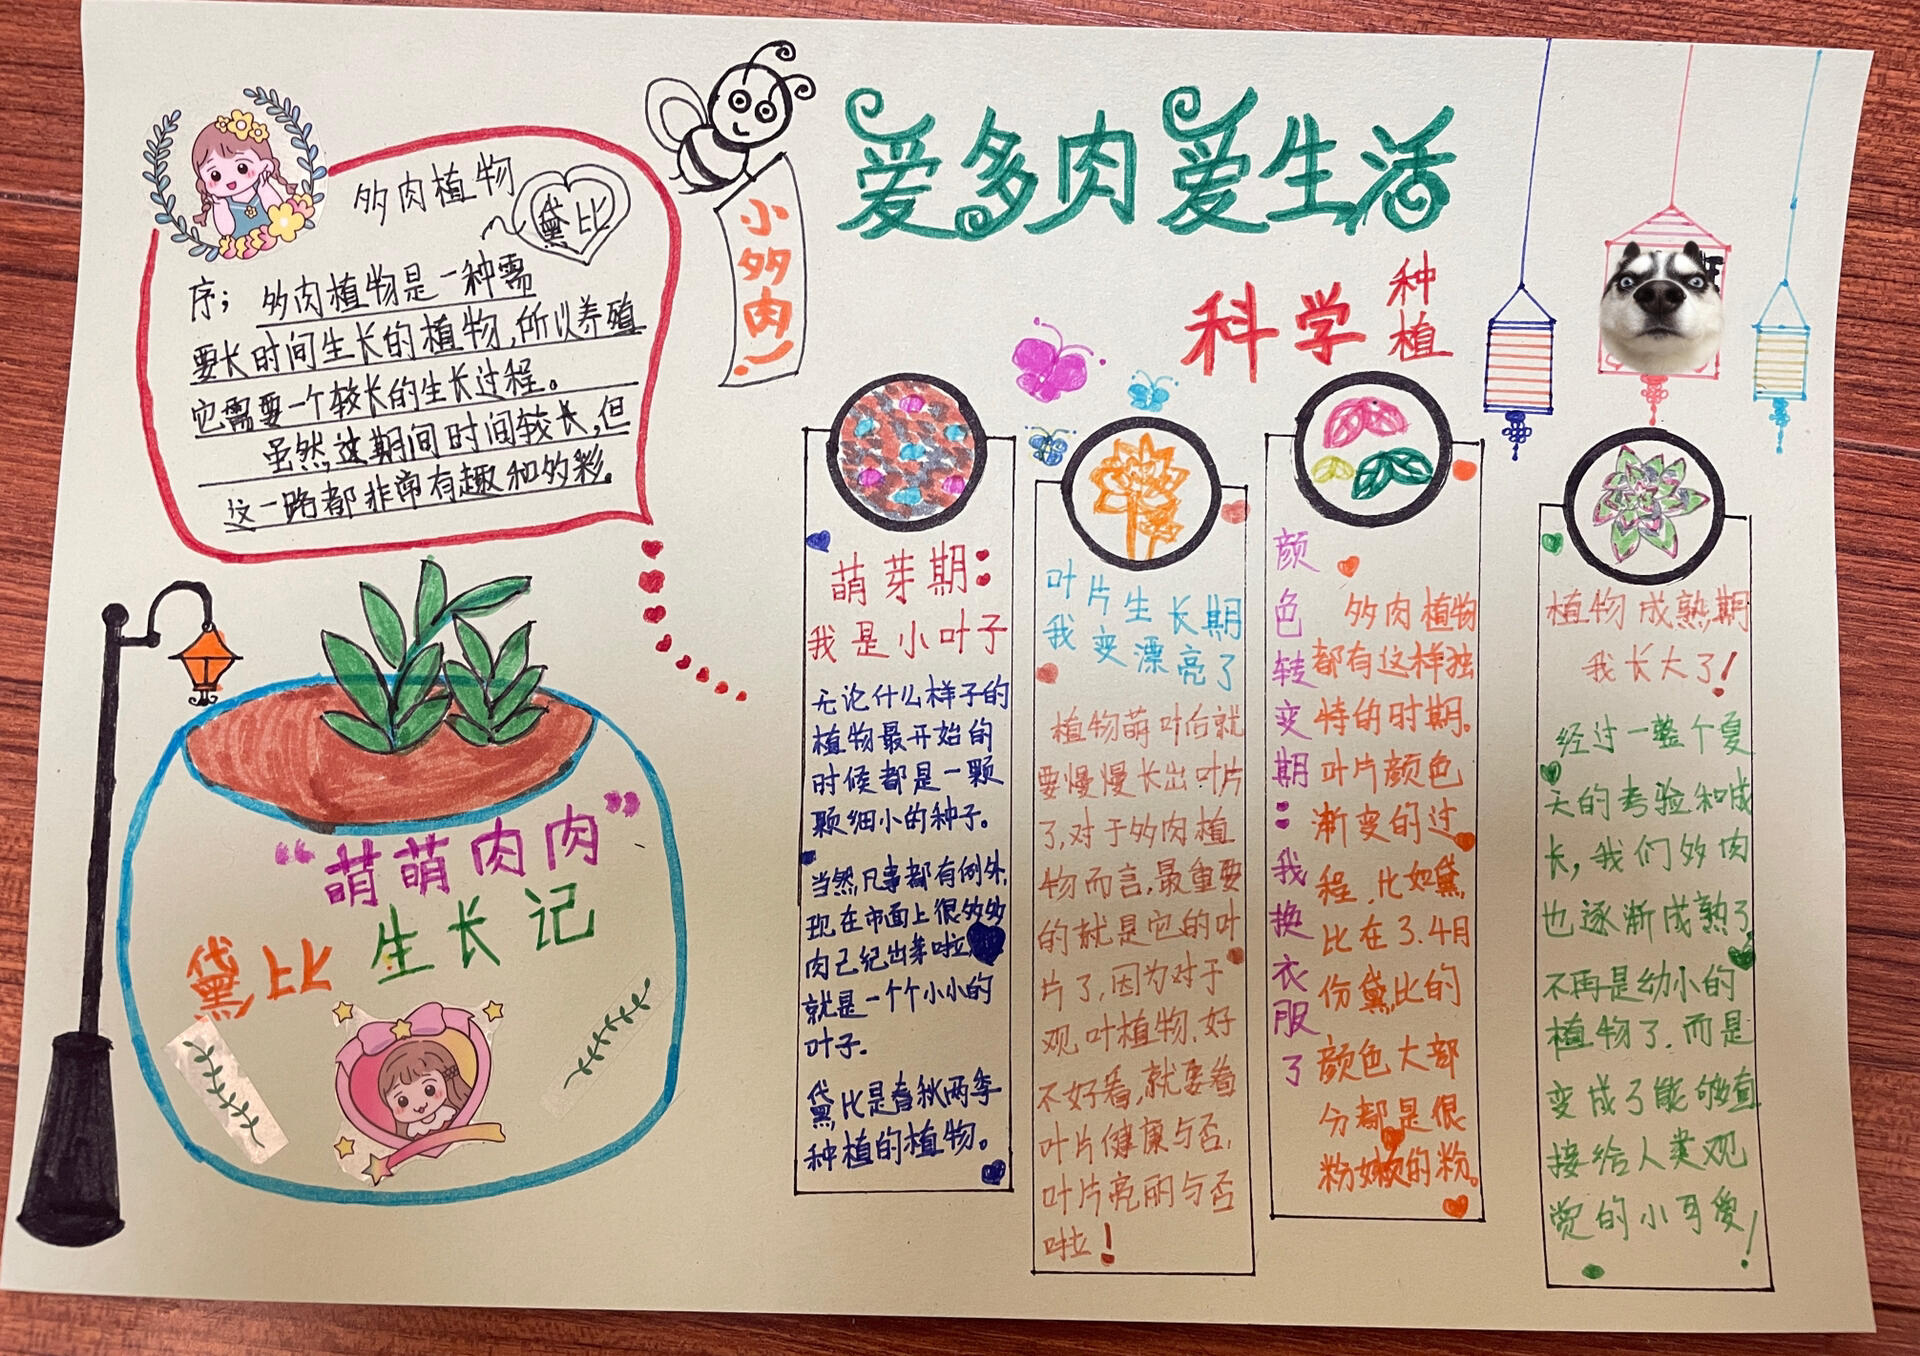 爱多肉爱生活
科学种植
小多肉！
多肉植物
黛比
序；多肉植物是一种需
要长时间生长的植物，所以养殖
它需要一个较长的生长过程。
虽然这期间时间较长，但
这一路都非常有趣和多彩。
“萌萌肉肉”
黛比生长记
萌芽期：
我是小叶子
无论什么样子的
植物最开始的
时候都是一颗
颗细小的种子。
当然，凡事都有例外，
现在市面上很多多
肉己纪出芽啦
就是一个个小小的
叶子.
黛比是春秋两季
种植的植物。
叶片生长期
我变漂亮了
植物萌叶后就
要慢慢长出叶片
了，对于多肉植
物而言，最重要
的就是它的叶
片了，因为对于
观叶植物，好
不好看，就要看
叶片健康与否，
叶片亮丽与否
啦！
颜色转变期：我换衣服了
多肉植物
都有这样独
特的时期。
叶片颜色
渐变的过
程，比如黛
比在3.4月
份黛比的
颜色大部
分都是很
粉嫩的粉。
植物成熟期
我长大了！
经过一整个夏
天的考验和成
长，我们多肉
也逐渐成熟了
不再是幼小的
植物了.而是
变成了能够直
接给人类观
赏的小可爱！